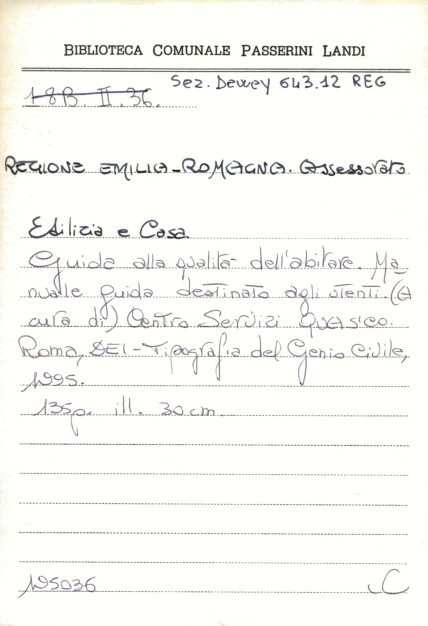 BIBLIOTECA COMUNALE PASSERINI LANDI
Sez. Dewey 643.12 REG
18B. II. 36.
REGIONE EMILIA-ROMAGNA. Assessorato
Edilizia e Casa
Guida alla qualità dell'abitare. Ma_
nuale guida destinato agli utenti. (A
cura di) Centro Servizi QUASCO.
Roma, DEI-Tipografia del Genio Civile,
1995.
135p. ill. 30 cm.
195036
C